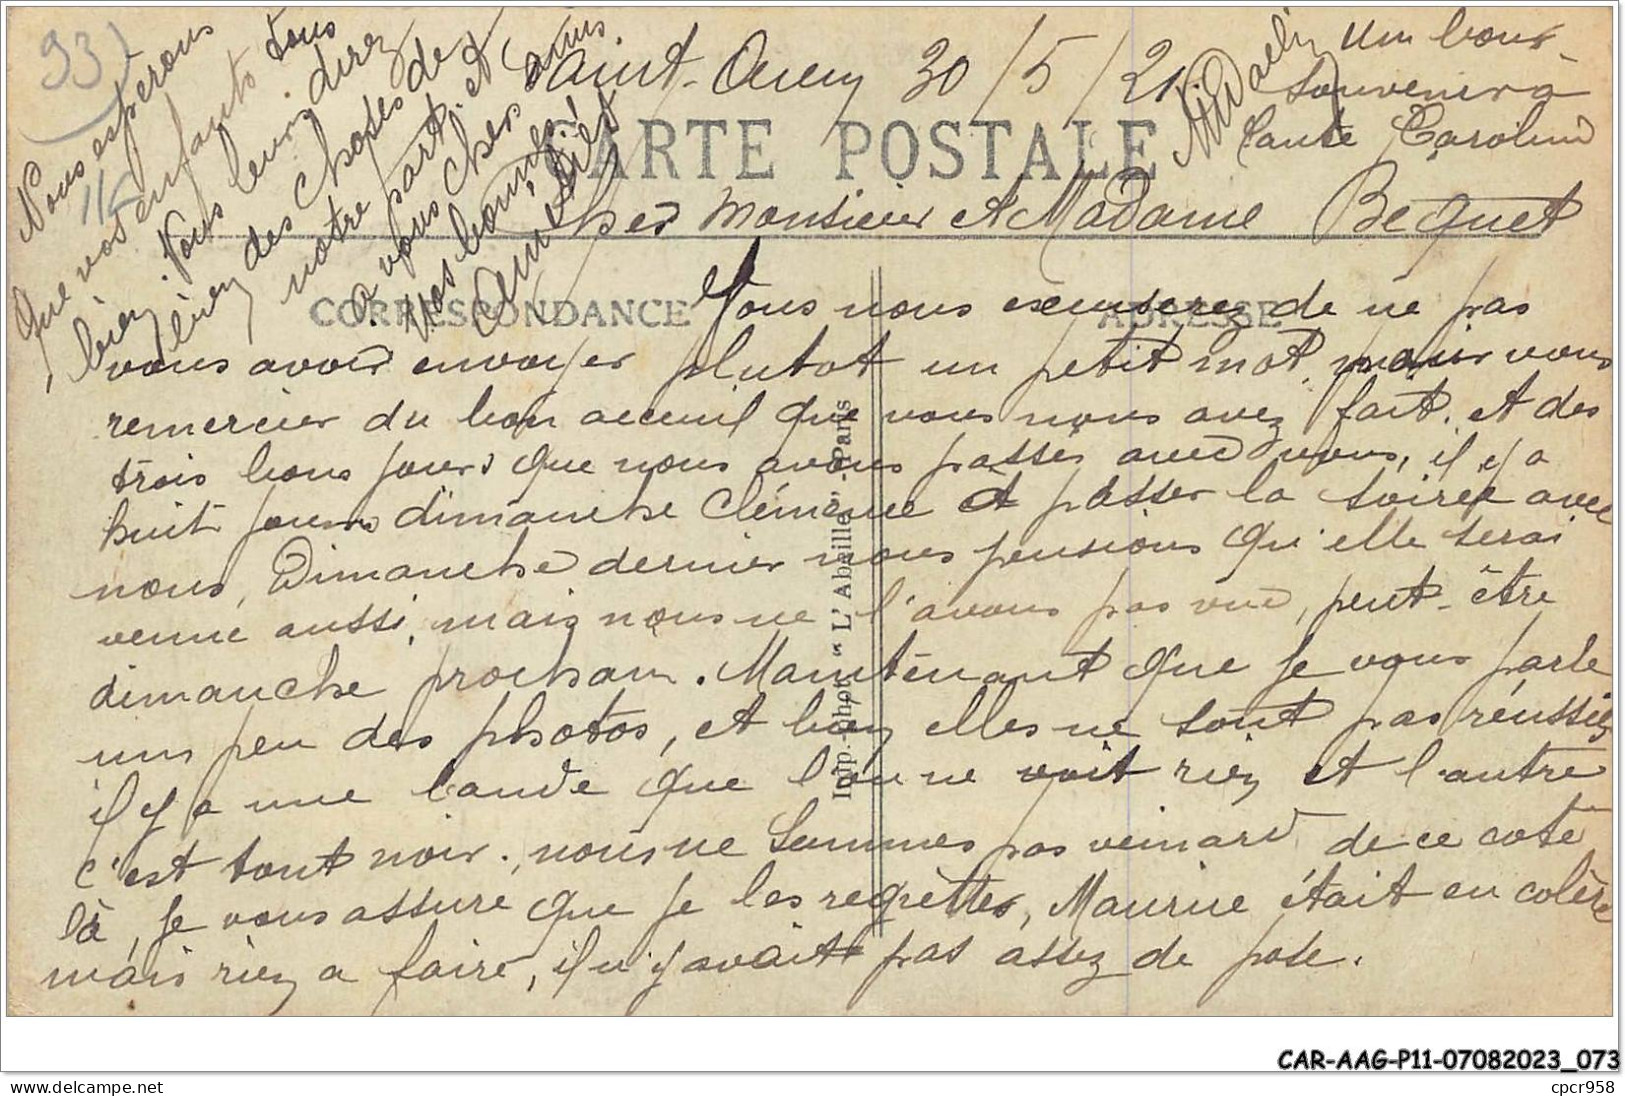 93)
116
Saint-Ouen 30/5/21
Un bon
souvenir à
tante Caroline
CARTE POSTALE
Cher Monsieur et Madame Bequet
CORRESPONDANCE
ADRESSE
Vous nous excuserez de ne pas
vous avoir envoyer plutot un petit mot, pour vous
remercier du bon acceuil que vous nous avez fait. et des
trois bons jours que nous avons passés avec vous, il y a
huit jours dimanche Clémence et passer la soirée avec
nous, Dimanche dernier nous pensions qu'elle serai
venue aussi, mais nous ne l'avons pas vue, peut-être
dimanche prochain. Maintenant que je vous parle
un peu des photos, et bien elles ne sont pas réussies
il y a une bande que l'on ne voit rien et l'autre
c'est tout noir. nous ne sommes pas veinard de ce coté
là, je vous assure que je les regrètte, Maurice était en colère
mais rien a faire, il n'y avait pas assez de pose.
Nous esperons
que vos enfants tous
bien. Vous leurs direz
bien des choses de
notre part. et
a vous chers amis
nos bonnes
amitiés
Imp. Phot. "L'Abeille", Paris
CAR-AAG-P11-07082023_073
www.delcampe.net
cpcr958